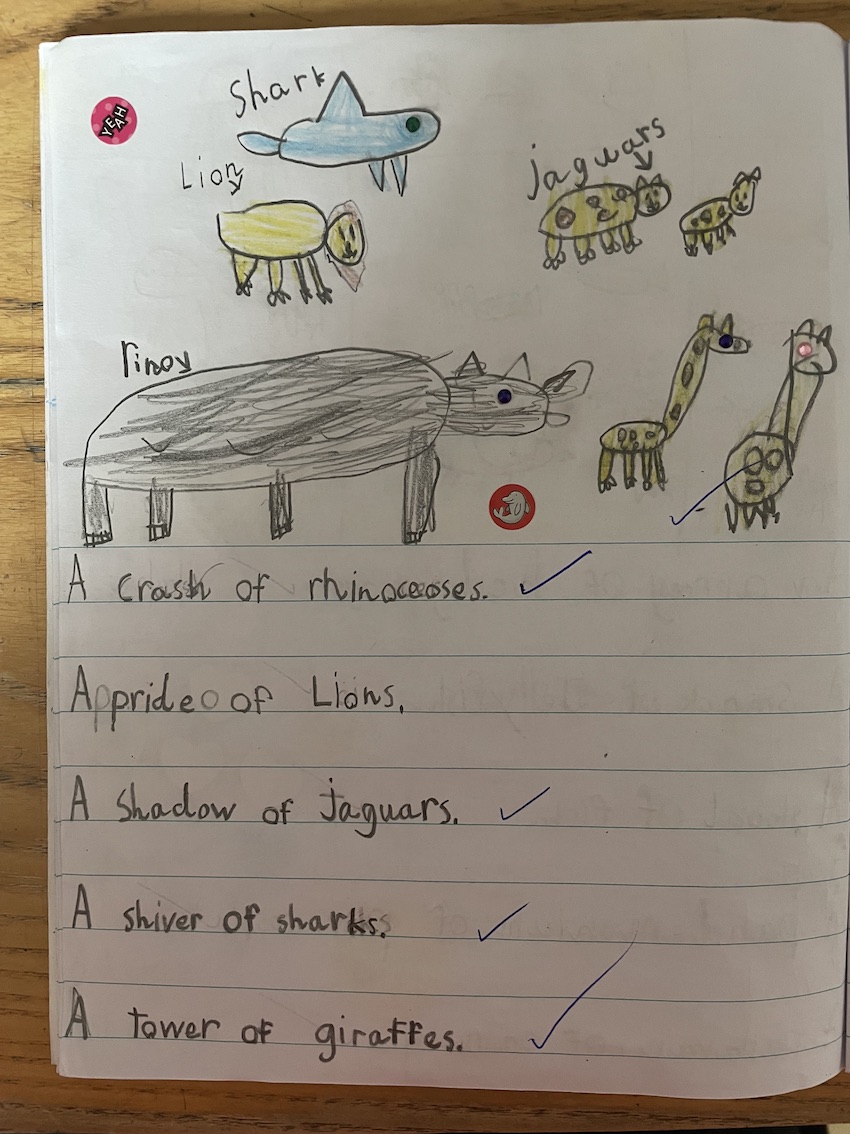 YEAH
Shark
Lion
jaguars
rinoy
A crash of rhinoceoses.
A pride of Lions.
A shadow of jaguars.
A shiver of sharks.
A tower of giraffes.